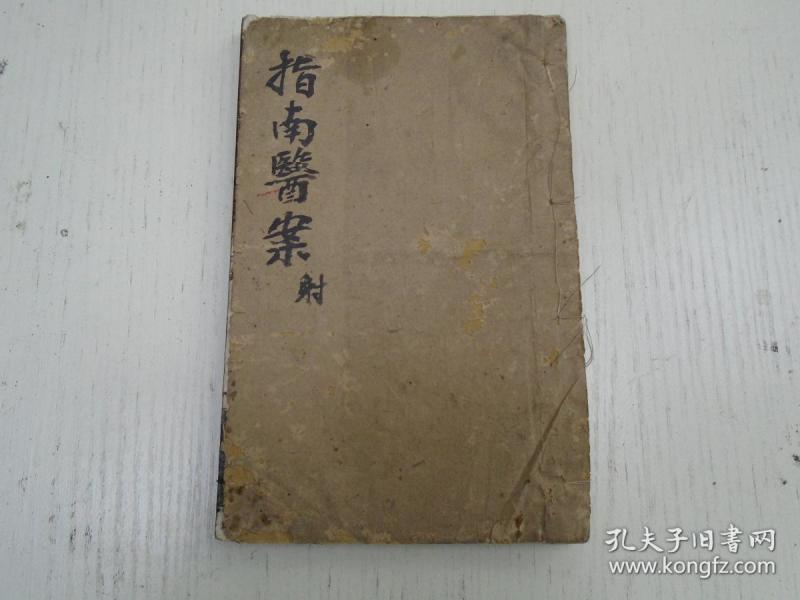 指南醫案
射
孔夫子旧書网
www.kongfz.com